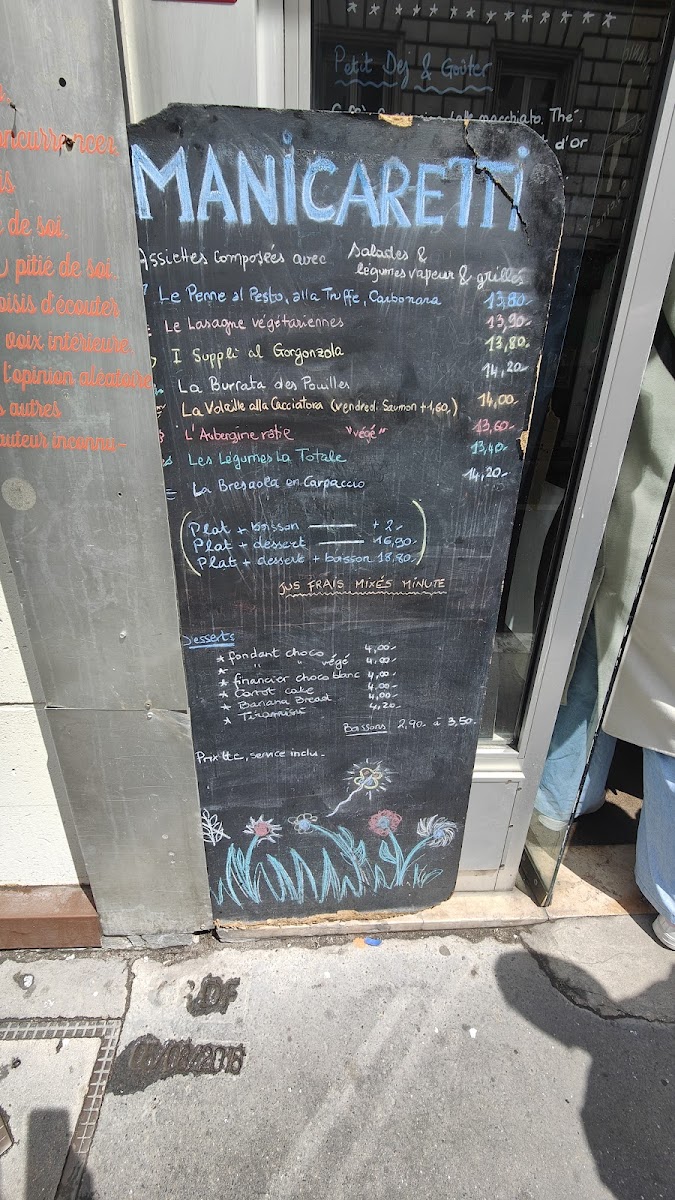 Petit Dej & Goûter
macchiato. Thé.
d'or
MANICARETTI
Assiettes composées avec salades &
légumes vapeur & grillés
Le Penne al Pesto, alla Truffe, Carbonara 13,80.-
Le Lasagne végétariennes 13,90.-
I Suppli al Gorgonzola 13,80.-
La Burrata des Pouilles 14,20.-
La Volaille alla Cacciatora (vendredi Saumon + 1,60.) 14,00.-
L'Aubergine rôtie "végé" 13,60.-
Les Légumes La Totale 13,40.-
La Bresaola en Carpaccio 14,20.-
Plat + boisson + 2.-
Plat + dessert 16,90.-
Plat + dessert + boisson 18,80.-
JUS FRAIS MIXÉS MINUTE
Desserts
* fondant choco 4,00.-
* " " végé 4,00.-
* financier choco blanc 4,00.-
* Carrot cake 4,00.-
* Banana Bread 4,00.-
* Tiramisu 4,20.-
Boissons 2,90.- à 3,50.-
Prix ttc, service inclu.-
de soi,
pitié de soi,
d'écouter
voix intérieure,
l'opinion aléatoire
autres
auteur inconnu.-
DF
2016